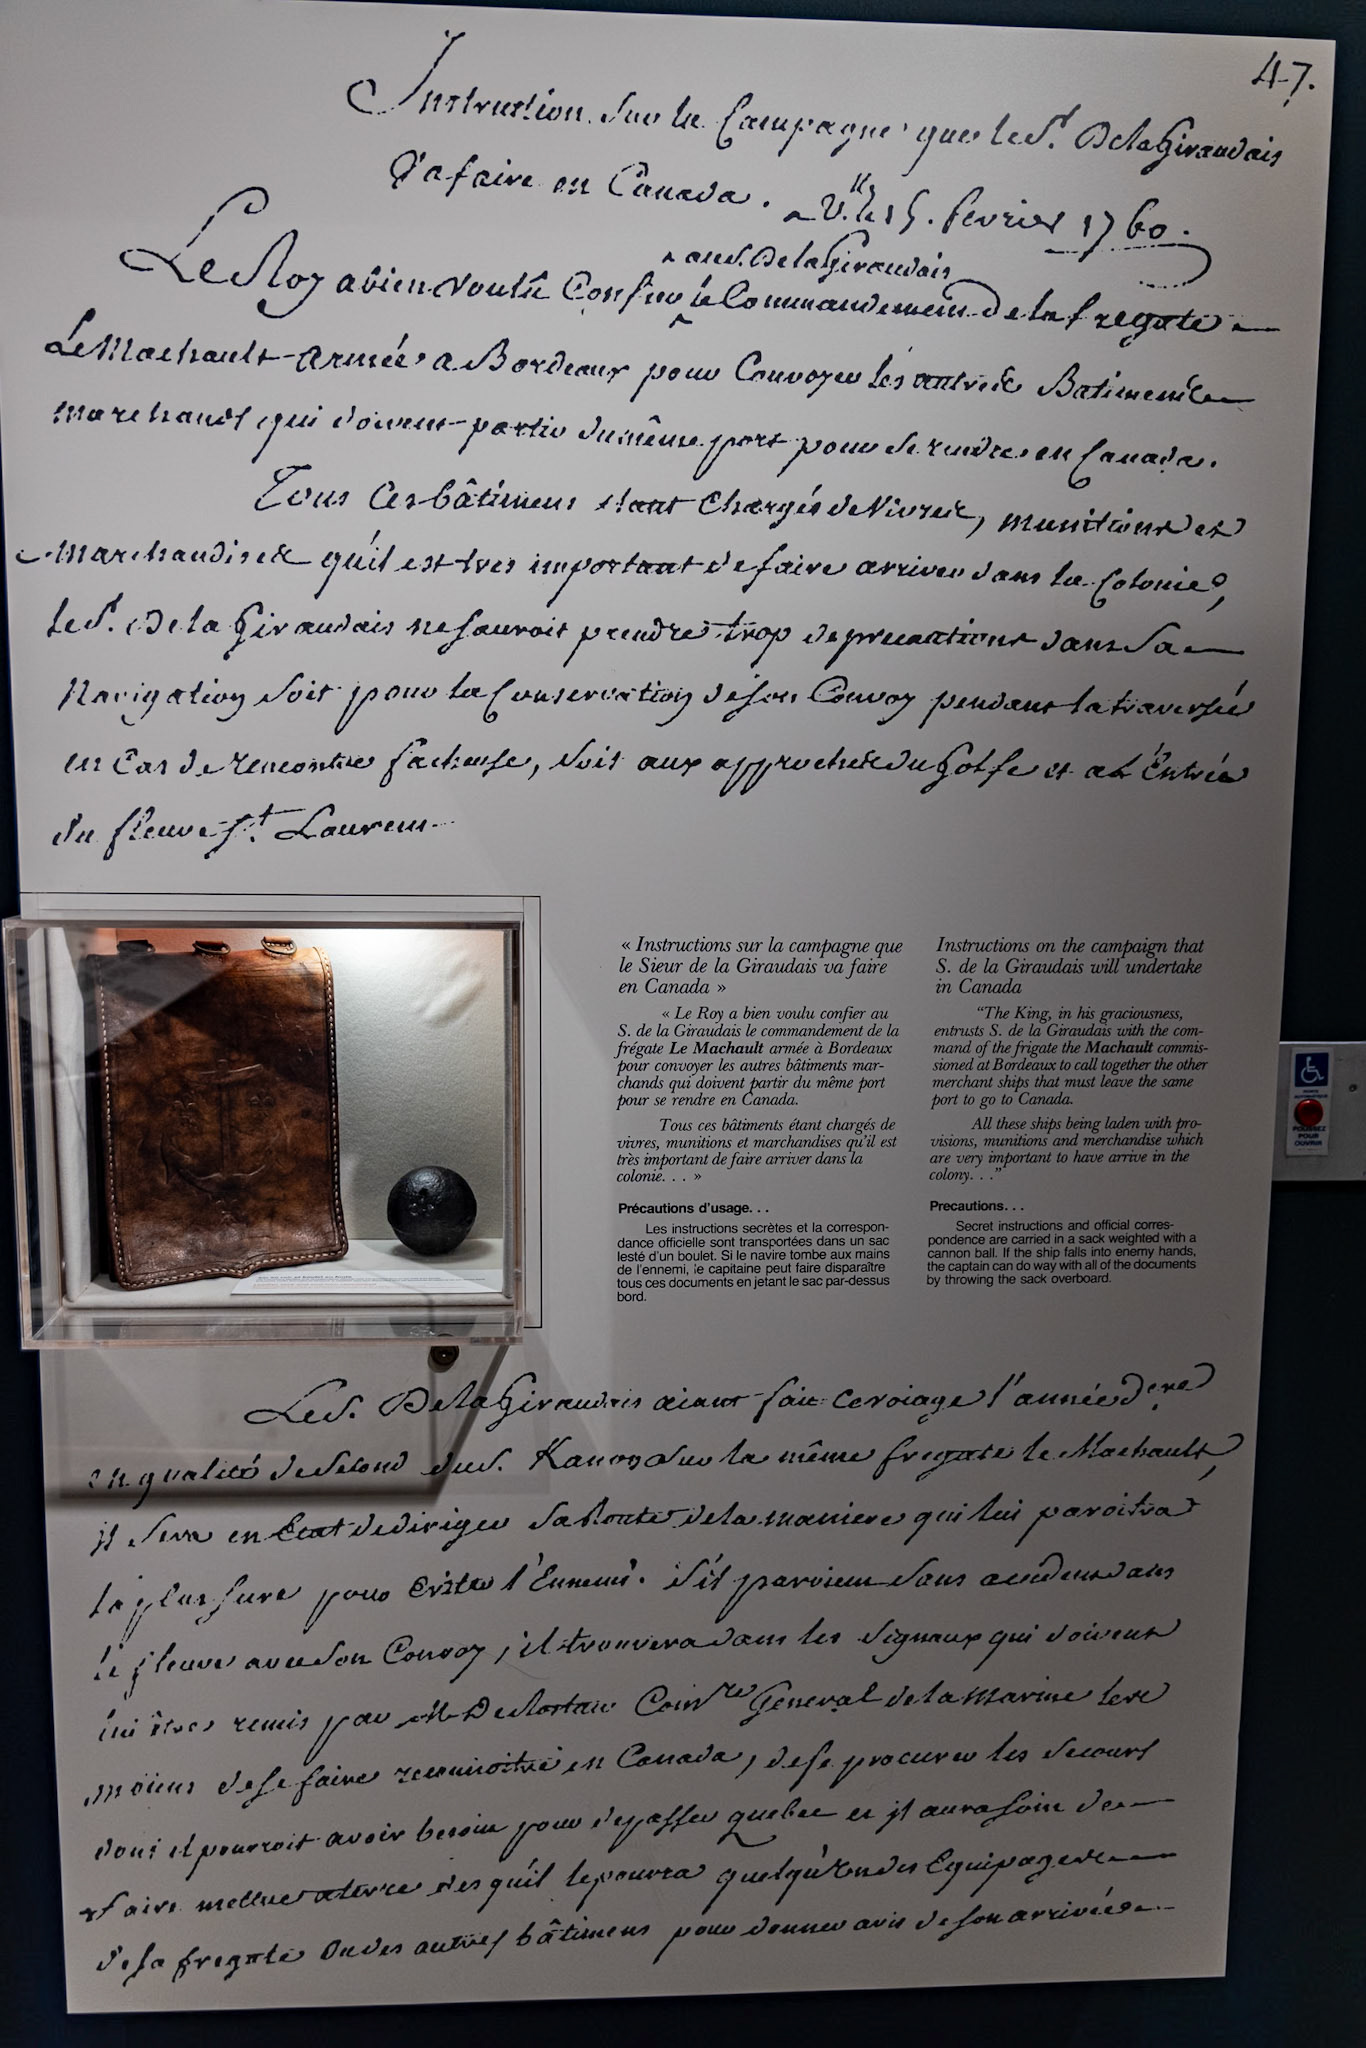 47.
Instruction sur la Campagne que le Sr. De la Giraudais
Va faire en Canada. a Vlles le 15. fevrier 1760.
au S. De la Giraudais
Le Roy a bien voulû Confier le Commandement De la fregate
Le Machault Armée a Bordeaux pour Convoyer les autres Batimens
Marchands qui doivent partir du même port pour se rendre en Canada.
Tous Ces bâtimens etant Chargés de Vivres, munitions et
Marchandises qu'il est tres important de faire arriver dans la Colonie,
le Sr. De la Giraudais ne sauroit prendre trop de precautions dans Sa
Navigation soit pour la Conservation de son Convoy pendant la traversée
en Cas de rencontre facheuse, soit aux approches du Golfe et a L'Entrée
du fleuve St. Laurens
« Instructions sur la campagne que
le Sieur de la Giraudais va faire
en Canada »
« Le Roy a bien voulu confier au
S. de la Giraudais le commandement de la
frégate Le Machault armée à Bordeaux
pour convoyer les autres bâtiments mar-
chands qui doivent partir du même port
pour se rendre en Canada.
Tous ces bâtiments étant chargés de
vivres, munitions et marchandises qu'il est
très important de faire arriver dans la
colonie. . . »
Précautions d'usage. . .
Les instructions secrètes et la correspon-
dance officielle sont transportées dans un sac
lesté d'un boulet. Si le navire tombe aux mains
de l'ennemi, le capitaine peut faire disparaître
tous ces documents en jetant le sac par-dessus
bord.
Instructions on the campaign that
S. de la Giraudais will undertake
in Canada
"The King, in his graciousness,
entrusts S. de la Giraudais with the com-
mand of the frigate the Machault commis-
sioned at Bordeaux to call together the other
merchant ships that must leave the same
port to go to Canada.
All these ships being laden with pro-
visions, munitions and merchandise which
are very important to have arrive in the
colony. . ."
Precautions. . .
Secret instructions and official corres-
pondence are carried in a sack weighted with a
cannon ball. If the ship falls into enemy hands,
the captain can do way with all of the documents
by throwing the sack overboard.
POUSSEZ
POUR
OUVRIR
Le S. De la Giraudais aiant fait ce voiage l'année dere.
en qualité de Second du S. Kanon sur la même fregate le Machault,
il sera en Etat de diriger Sa Route de la maniere qui lui paroitra
la plus sure pour Eviter l'Ennemi. S'il parvient sans accident dans
le fleuve avec son Convoy, il trouvera dans les signaux qui doivent
lui êtres remis par M. De Rostan Comre General de la Marine les
moiens de se faire reconnoitre en Canada, de se procurer les secours
dont il pourroit avoir besoin pour depasser quebec et il aura soin de
faire mettre a terre des qu'il le pourra quelqu'Un des Equipages
de la fregate Ou des autres bâtimens pour donner avis de son arrivée